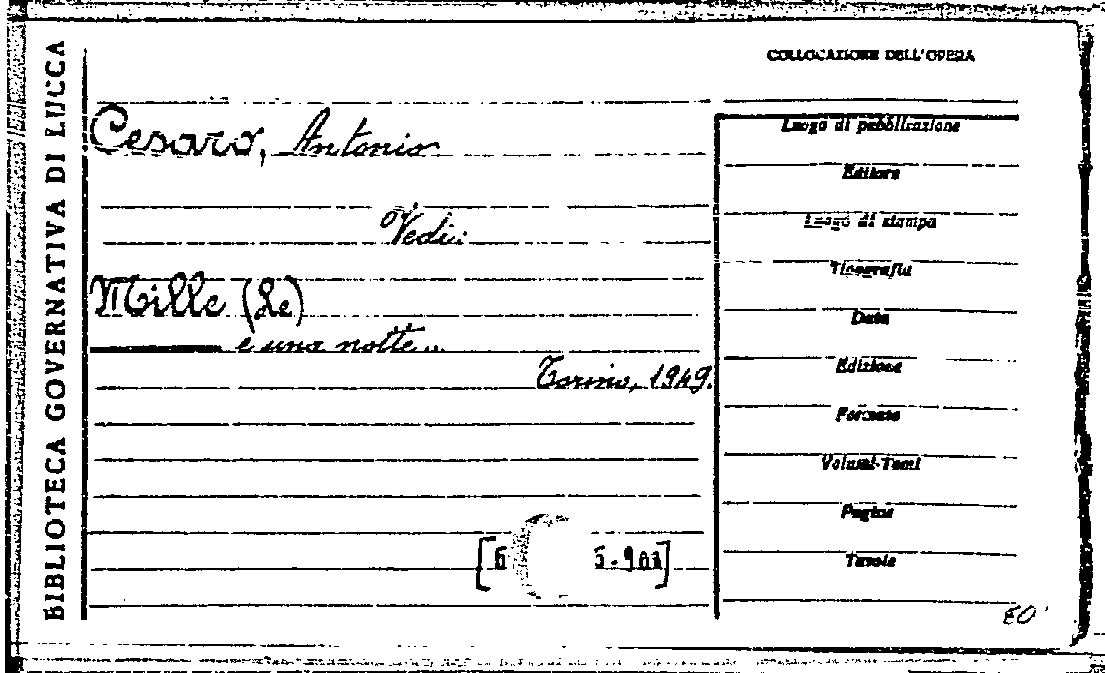 BIBLIOTECA GOVERNATIVA DI LUCCA
COLLOCAZIONE DELL'OPERA
Cesaro, Antonio
Vedi:
Mille (Le)
e una notte..
Torino, 1949.
Luogo di pubblicazione
Editore
Luogo di stampa
Tipografia
Data
Edizione
Formato
Volumi-Tomi
Pagine
Tavole